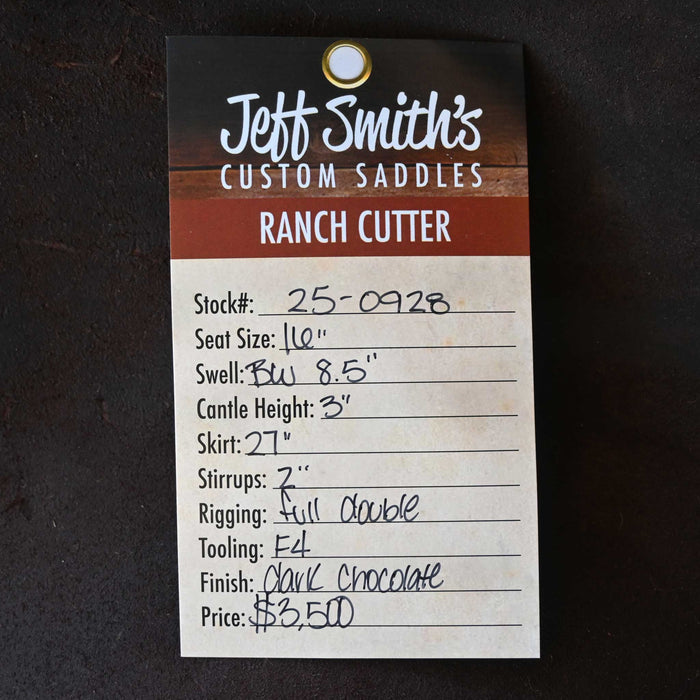 Jeff Smith's
CUSTOM SADDLES
RANCH CUTTER
Stock#: 25-0928
Seat Size: 16"
Swell: BW 8.5"
Cantle Height: 3"
Skirt: 27"
Stirrups: 2"
Rigging: full double
Tooling: F4
Finish: dark chocolate
Price: $3,500